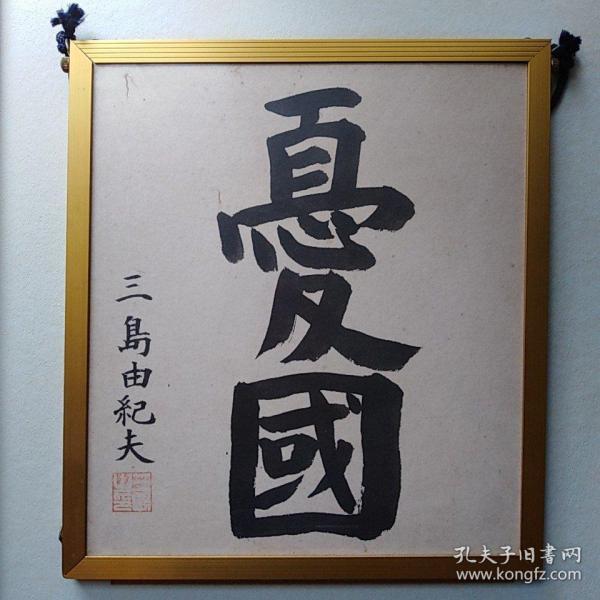 憂國
三島由紀夫
孔夫子旧書网
www.kongfz.com